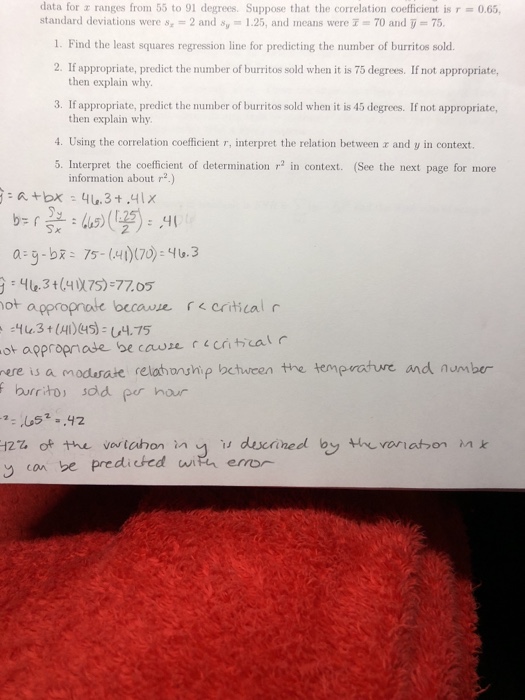 data for x ranges from 55 to 91 degrees. Suppose that the correlation coefficient is r = 0.65,
standard deviations were sₓ = 2 and s_y = 1.25, and means were x̄ = 70 and ȳ = 75.
1. Find the least squares regression line for predicting the number of burritos sold.
2. If appropriate, predict the number of burritos sold when it is 75 degrees. If not appropriate,
then explain why.
3. If appropriate, predict the number of burritos sold when it is 45 degrees. If not appropriate,
then explain why.
4. Using the correlation coefficient r, interpret the relation between x and y in context.
5. Interpret the coefficient of determination r² in context. (See the next page for more
information about r².)
ŷ = a + bx = 46.3 + .41x
b = r Sy/Sx = (.65)(1.25/2) = .41
a = ȳ - bx̄ = 75 - (.41)(70) = 46.3
ŷ = 46.3 + (.41)(75) = 77.05
not appropriate because r < critical r
= 46.3 + (.41)(45) = 64.75
not appropriate because r < critical r
There is a moderate relationship between the temperature and number
of burritos sold per hour
r² = .65² = .42
42% of the variation in y is described by the variation in x
y can be predicted with error